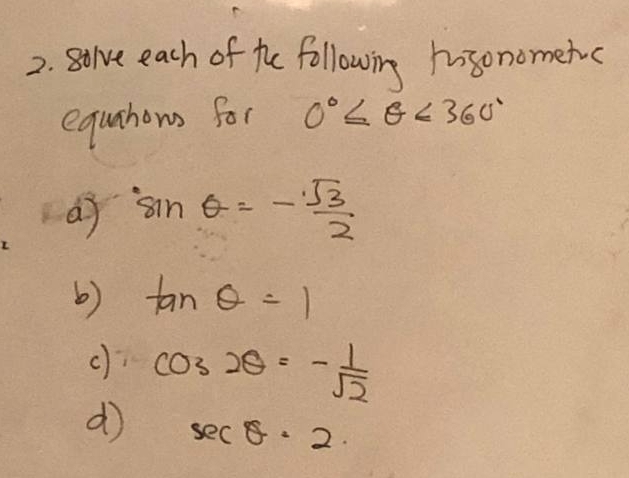 2. Solve each of the following trigonometric
equations for 0° ≤ θ < 360°
a) sin θ = -√3/2
b) tan θ = 1
c) cos 2θ = -1/√2
d) sec θ = 2.